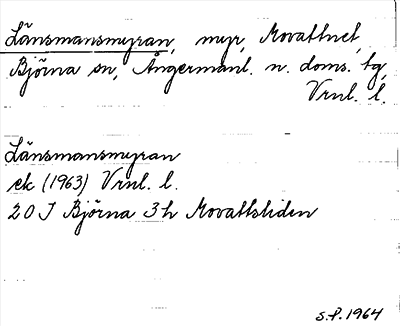 Länsmansmyran, myr, Movattnet,
Björna sn, Ångermanl. n. doms. tg,
Vrnl. l.
Länsmansmyran
ek (1963) Vrnl. l.
20 J Björna 3h Movattsliden
S.P. 1964